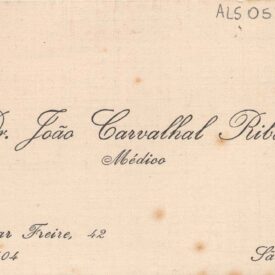 ALS 05
Dr. João Carvalhal Rib
Médico
ar Freire, 42
04
Sã